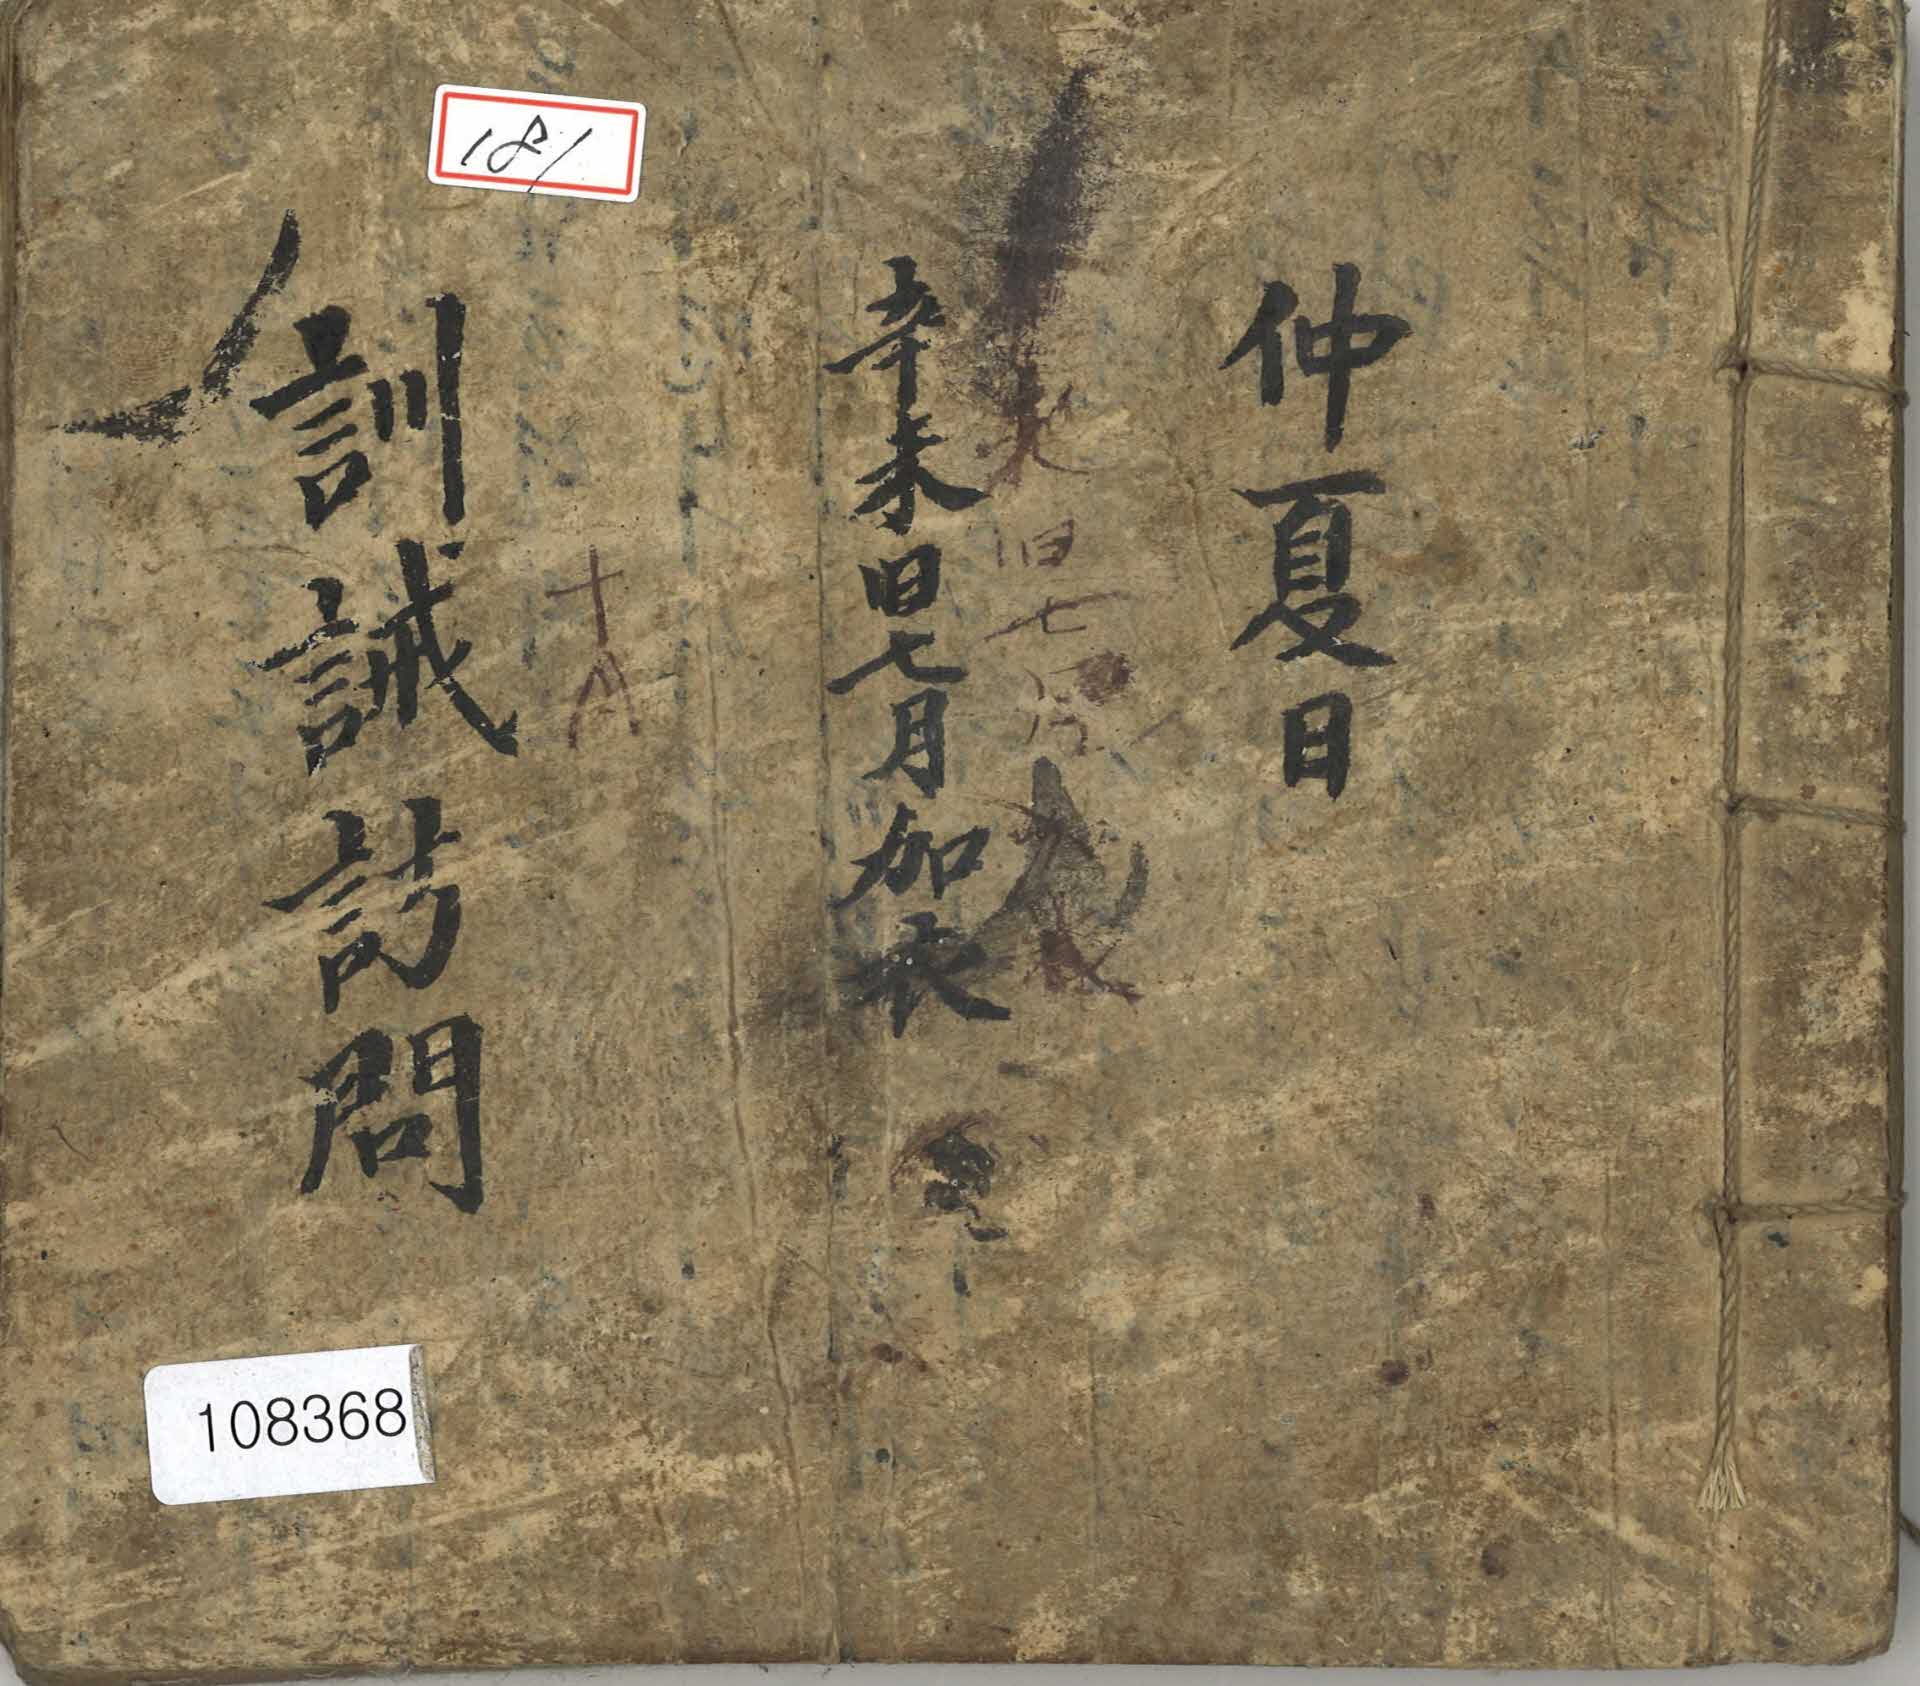 仲夏日
辛未旧七月加衣
訓誡訪問
181
108368